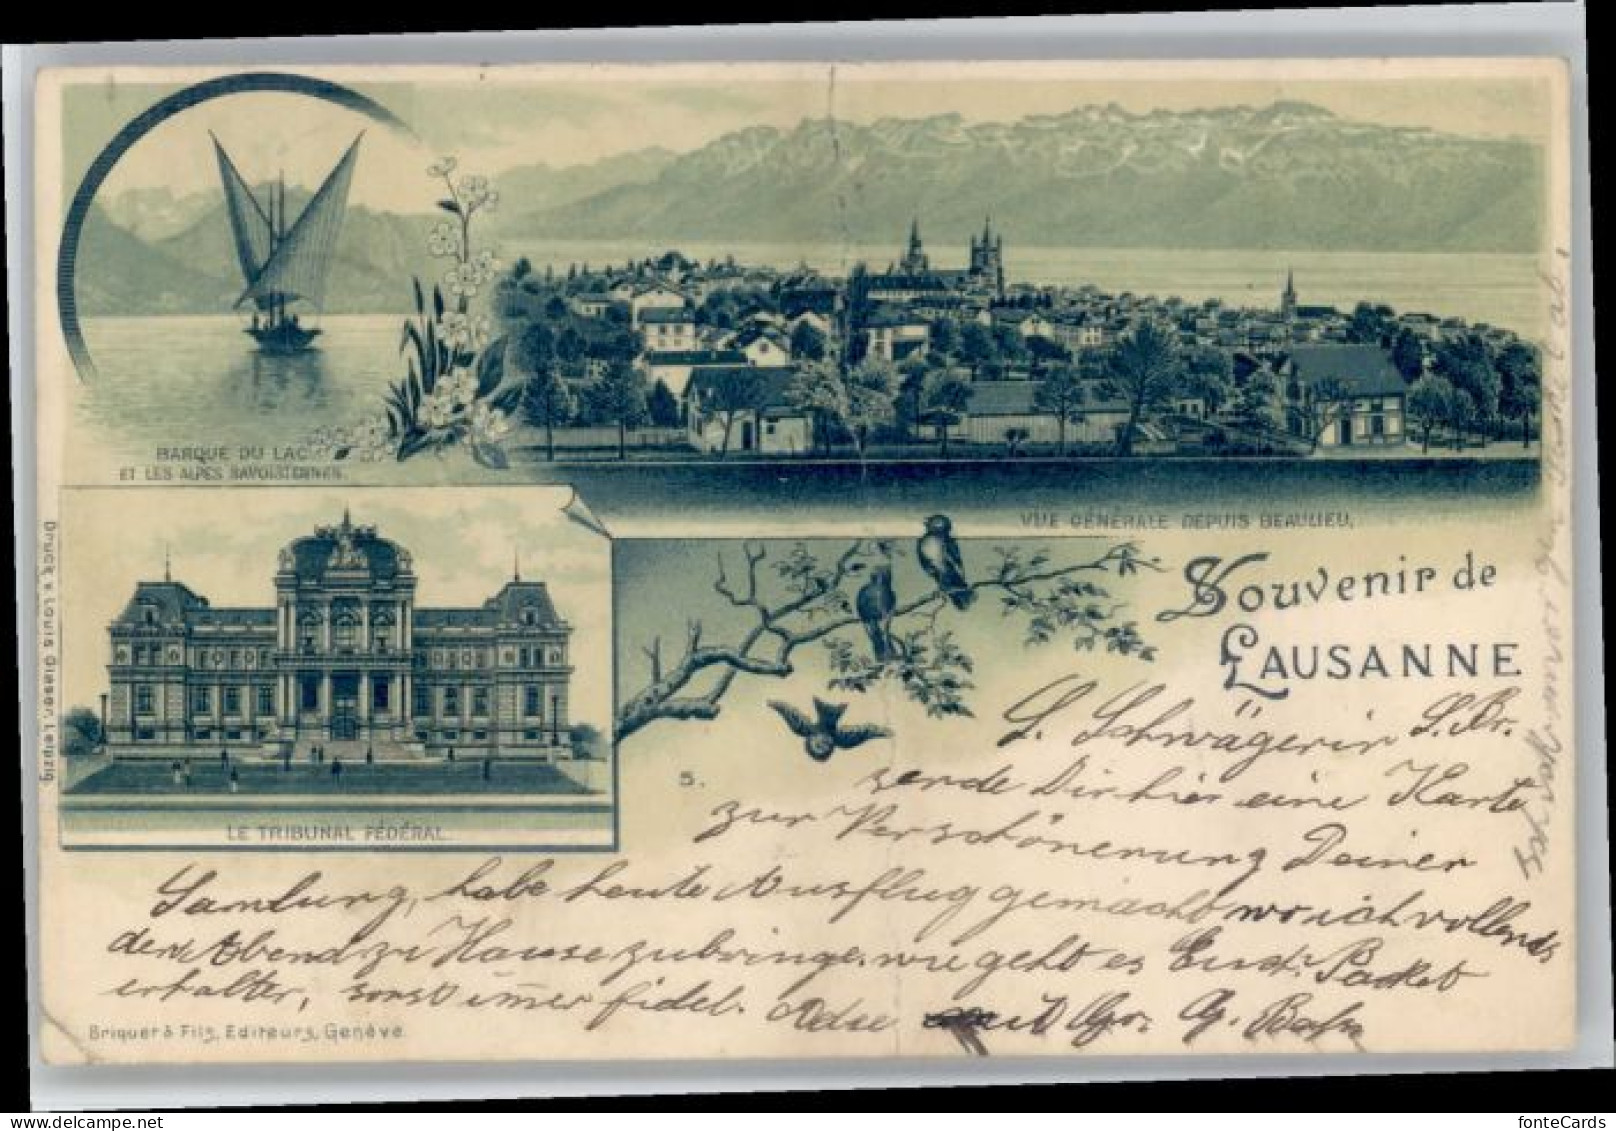 BARQUE DU LAC
ET LES ALPES SAVOISIENNES.
VUE GÉNÉRALE DEPUIS BEAULIEU.
Souvenir de
LAUSANNE
LE TRIBUNAL FÉDÉRAL.
5.
L. Schwägerin L. Br.
sende Dir hier eine Karte
zur Verschönerung Deiner
Samlung, habe heute Ausflug gemacht wo ich vollends
den Abend zu Hause zubringe. wie geht es Euch: Packet
erhalten, sonst immer fidel. Adie
Druck v. Louis Glaser, Leipzig.
Briquet & Fils, Editeurs, Genève.
fonteCards